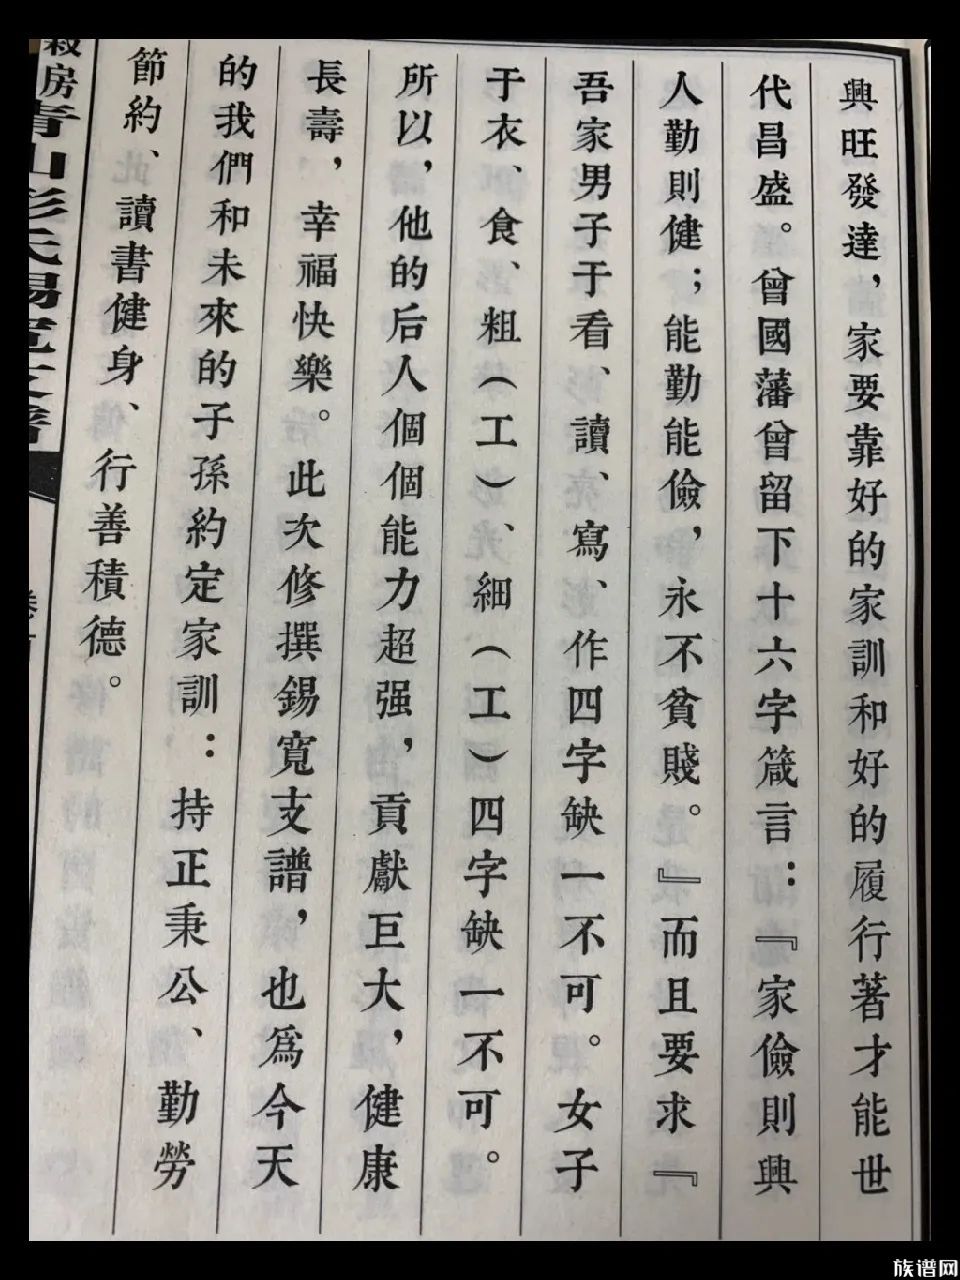 興旺發達，家要靠好的家訓和好的履行著才能世
代昌盛。曾國藩曾留下十六字箴言：『家儉則興
人勤則健；能勤能儉，永不貧賤。』而且要求『
吾家男子于看、讀、寫、作四字缺一不可。女子
于衣、食、粗（工）、細（工）四字缺一不可。
所以，他的后人個個能力超强，貢獻巨大，健康
長壽，幸福快樂。此次修撰錫寬支譜，也爲今天
的我們和未來的子孫約定家訓：持正秉公、勤勞
節約、讀書健身、行善積德。
房青山彭氏錫寬支譜
族谱网